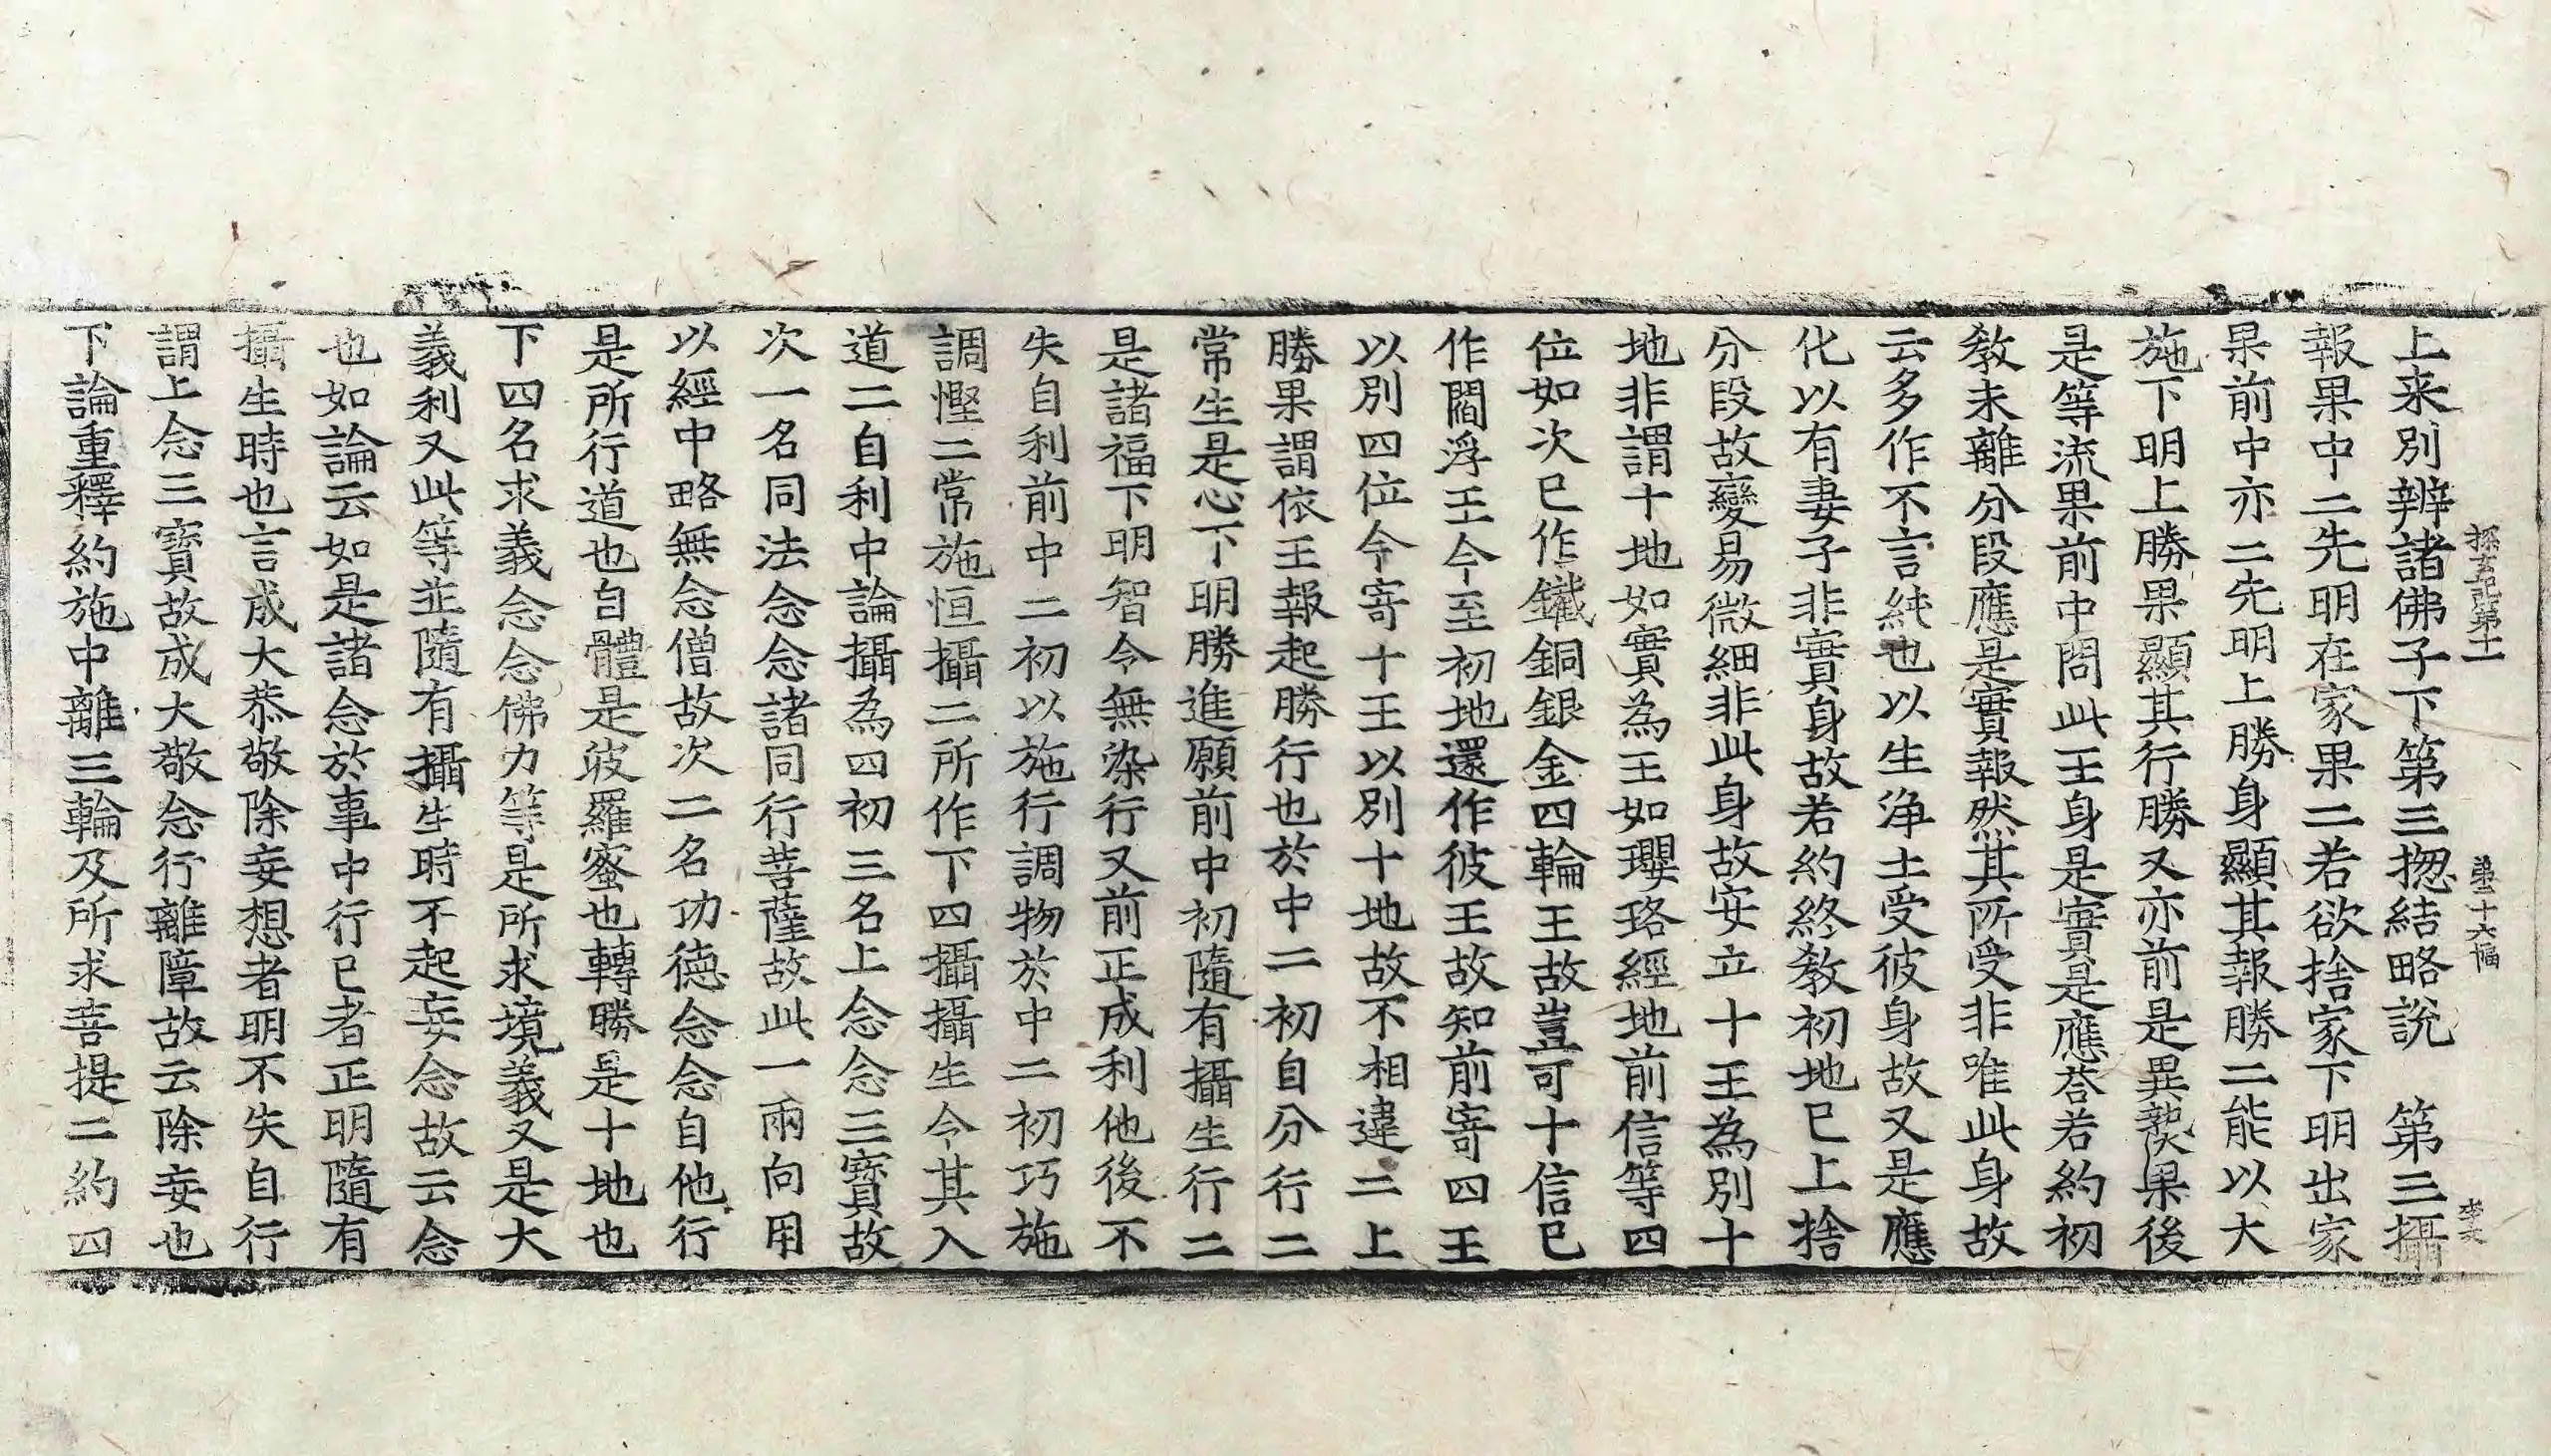 上来別辨諸佛子下第三揔結略說　第三攝
探玄記第十一　第二十六幅
報果中二先明在家果二若欲捨家下明出家
果前中亦二先明上勝身顯其報勝二能以大
施下明上勝果顯其行勝又亦前是異𤍠果後
是等流果前中問此王身是實是應荅若約初
教未離分段應是實報然其所受非唯此身故
云多作不言純也以生淨土受彼身故又是應
化以有妻子非實身故若約終教初地已上捨
分段故變易微細非此身故安立十王為別十
地非謂十地如實為王如瓔珞經地前信等四
位如次已作鐵銅銀金四輪王故豈可十信已
作閻浮王今至初地還作彼王故知前寄四王
以別四位今寄十王以別十地故不相違二上
勝果謂依王報起勝行也於中二初自分行二
常生是心下明勝進願前中初隨有攝生行二
是諸福下明智令無染行又前正成利他後不
失自利前中二初以施行調物於中二初巧施
調慳二常施恒攝二所作下四攝攝生令其入
道二自利中論攝為四初三名上念念三寶故
次一名同法念念諸同行菩薩故此一兩向用
以經中略無念僧故次二名功德念念自他行
是所行道也自體是波羅蜜也轉勝是十地也
下四名求義念念佛力等是所求境義又是大
義利又此等並隨有攝生時不起妄念故云念
也如論云如是諸念於事中行已者正明隨有
攝生時也言成大恭敬除妄想者明不失自行
謂上念三寶故成大敬念行離障故云除妄也
下論重釋約施中離三輪及所求菩提二約四